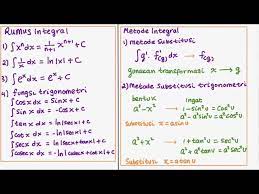 Rumus Integral
1) ∫xⁿdx = xⁿ⁺¹/n+1 + C
2) ∫1/x dx = ln|x| + C
3) ∫eˣdx = eˣ + C
4) fungsi trigonometri
∫cosx dx = sinx + C
∫sinx dx = -cosx + C
∫tanx dx = -ln|cosx| + C
∫secx dx = ln|secx + tanx| + C
Metode Integral
1) metode Substitusi
gunakan transformasi x → g
2) Metode Substitusi trigonometri
bentuk ingat
a²-x² 1-sin²u = cos²u
a²-a²sin²u = a²cos²u
Substitusi x = a sinu
a²+x² 1+tan²u = sec²u
a²+a²tan²u = a²sec²u
Substitusi x = a tanu